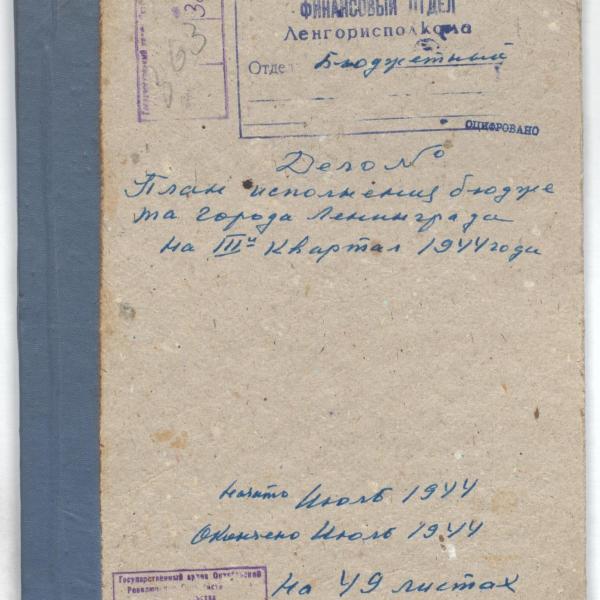 ФИНАНСОВЫЙ ОТДЕЛ
Ленгорисполкома
Отдел Бюджетный
ОЦИФРОВАНО
563
Дело №
План исполнения бюдже
та города Ленинграда
на III й квартал 1944 года
начато Июль 1944
Окончено Июль 1944
На 49 листах
Государственный архив Октябрьской